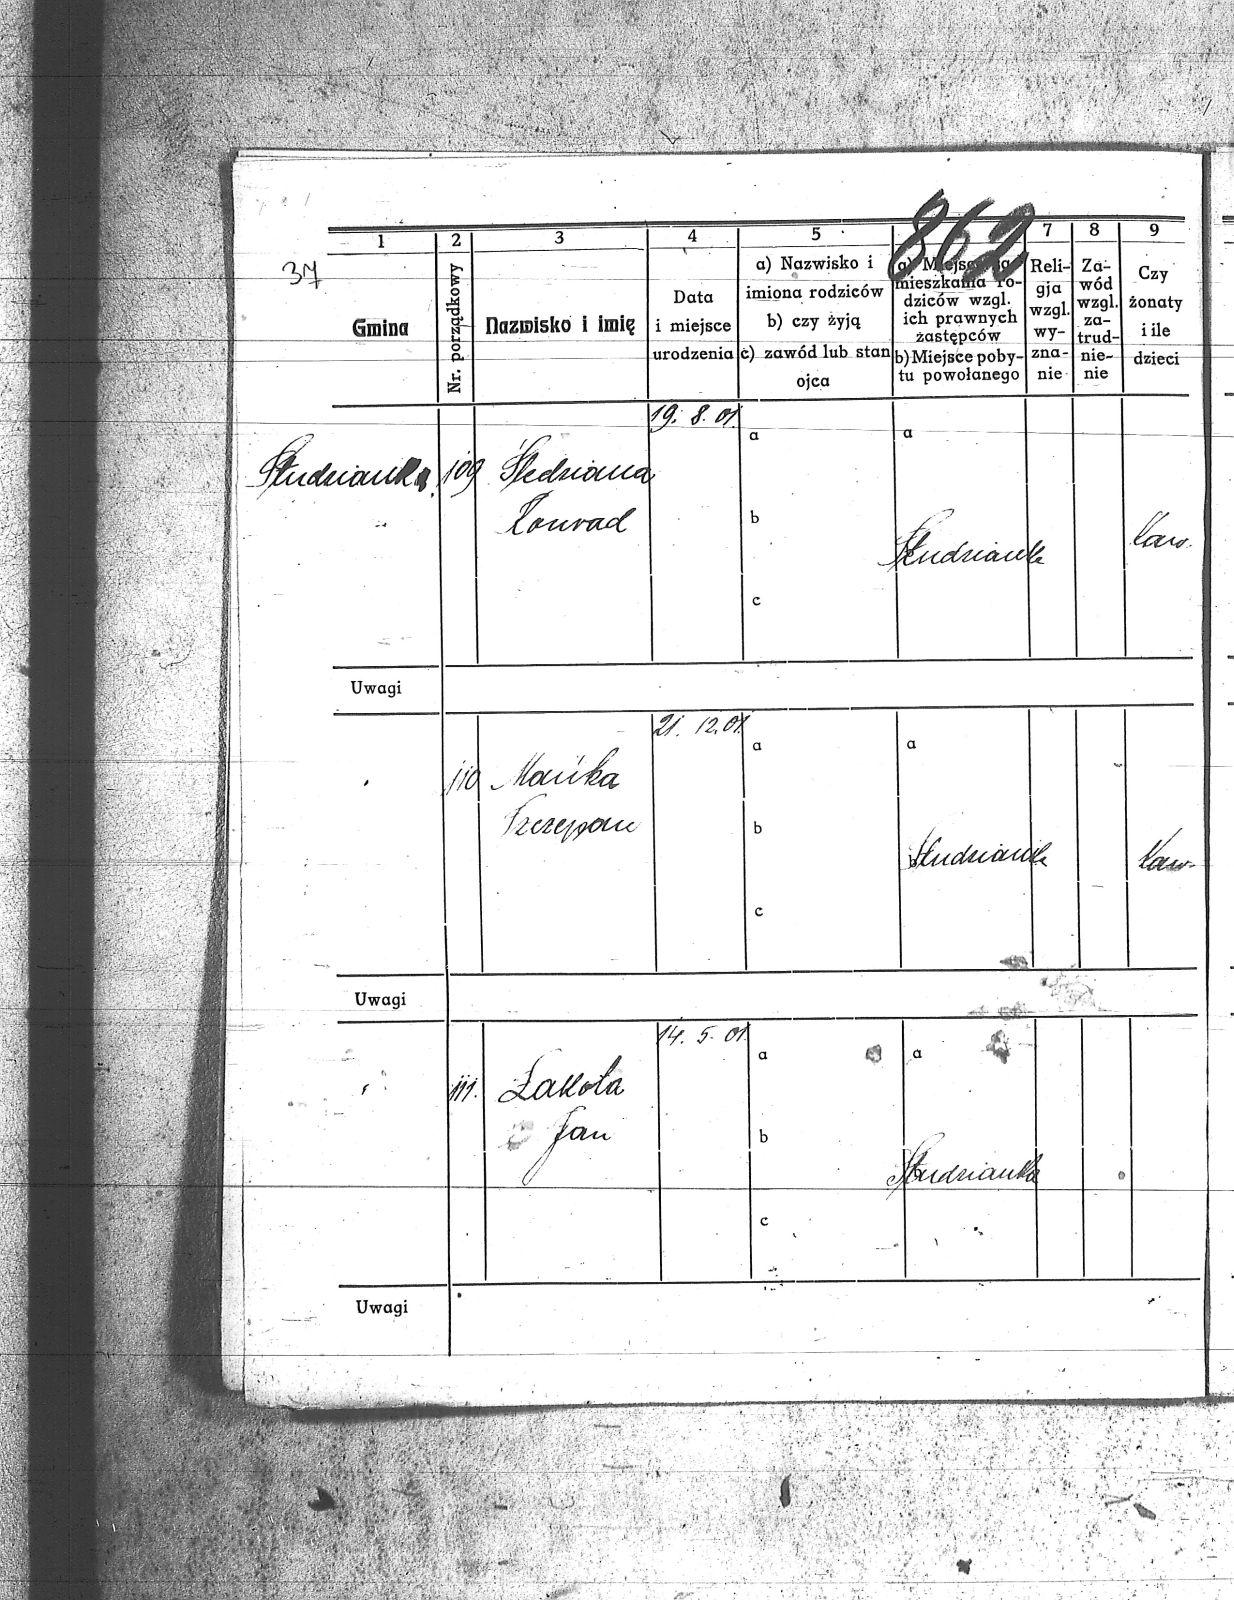 862
37
1 2 3 4 5 7 8 9
Gmina
Nr. porządkowy
Nazwisko i imię
Data
i miejsce
urodzenia
a) Nazwisko i
imiona rodziców
b) czy żyją
c) zawód lub stan
ojca
a) Miejsce
mieszkania ro-
dziców wzgl.
ich prawnych
zastępców
b) Miejsce poby-
tu powołanego
Reli-
gja
wzgl.
wy-
zna-
nie
Za-
wód
wzgl.
za-
trud-
nie-
nie
Czy
żonaty
i ile
dzieci
19. 8. 01.
a a
Studzianka 109 Śledziona
Konrad
b
Studzianka Kaw.
c
Uwagi
21. 12. 01.
a a
110 Mańka
Szczepan
b
Studzianka Kaw.
c
Uwagi
14. 5. 01.
a a
111. Łakota
Jan
b
Studzianka
c
Uwagi